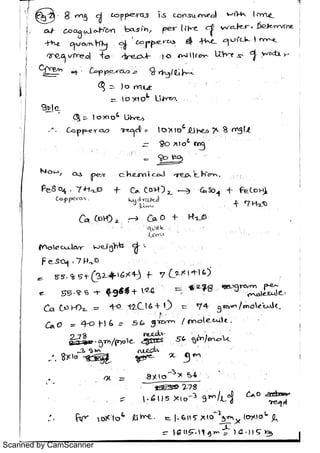 Eg 2) 8 mg of copperas is consumed with lime
at coagulation basin, per litre of water. Determine
the quantity of copperas & the quick lime
required to treat 10 million litres of water.
Given → Copperas = 8 mg/litre
Q = 10 mld
= 10 x 10⁶ litres.
Soln
Q = 10x10⁶ litres
∴ Copperas reqd = 10x10⁶ litres x 8 mg/l
= 80 x10⁶ mg
= 80 kg
Now, as per chemical reaction.
FeSO₄ . 7H₂O + Ca(OH)₂ → CaSO₄ + Fe(OH)₂
Copperas. hydrated + 7H₂O
lime
Ca(OH)₂ → CaO + H₂O
quick
lime
Molecular weights of :
FeSO₄ . 7H₂O
= 55.85+(32+16x4) + 7(2x1+16)
= 55.85 + + 126 = 278 gram per
molecule.
Ca(OH)₂ = 40 +2(16+1) = 74 gram/molecule.
CaO = 40+16 = 56 gram /molecule.
278 gm/mole needs 56 gm/mole
∴ 8x10⁻³ gm needs x gm
∴ x = 8x10⁻³ x 56
278
= 1.6115 x10⁻³ gm/l of CaO
reqd
∴ For 10x10⁶ litre. = 1.6115 x10⁻³ gm/l x 10x10⁶ l
= 16115.1 gm = 16.115 kg
Scanned by CamScanner